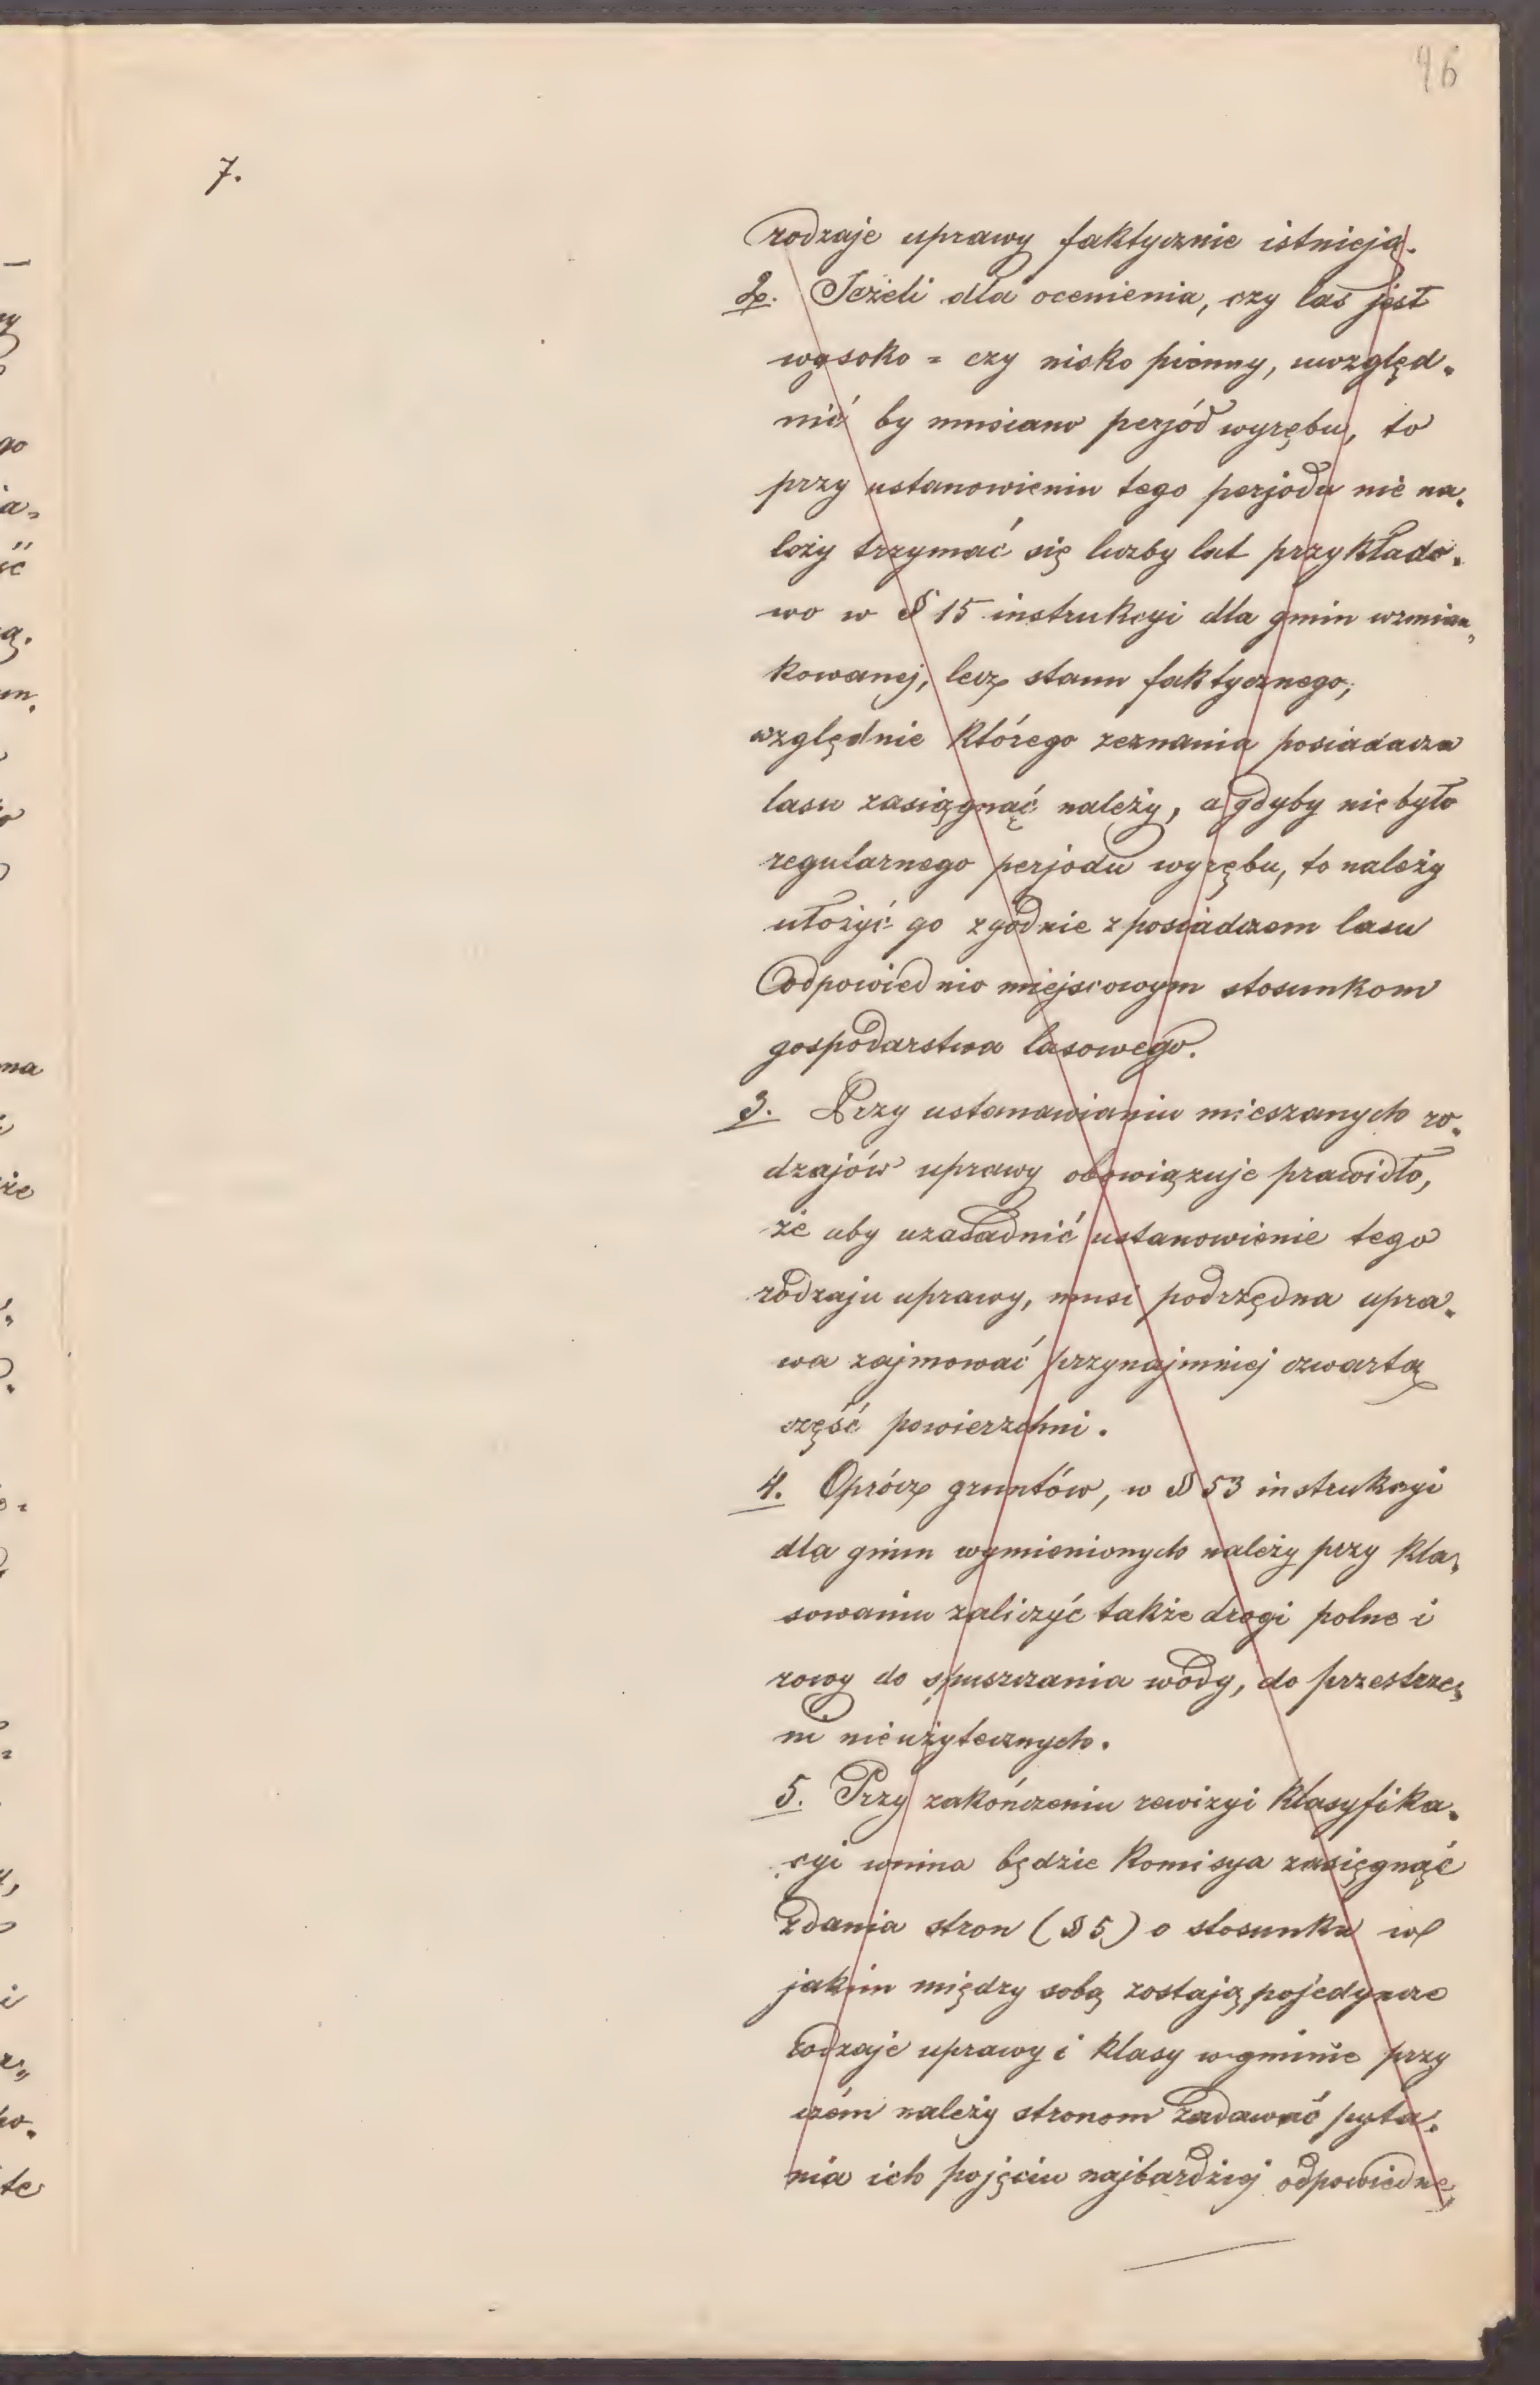 46
7.
rodzaje uprawy faktycznie istnieją.
2. Jeżeli dla ocenienia, czy las jest
wysoko = czy nisko pienny, uwzględ-
nić by musiano perjód wyrębu, to
przy ustanowieniu tego perjodu nie na-
leży trzymać się liczby lat przykłado-
wo w § 15 instrukcyi dla gmin wzmian-
kowanej, lecz stanu faktycznego,
względnie którego zeznania posiadacza
lasu zasięgnąć należy, a gdyby nie było
regularnego perjodu wyrębu, to należy
ułożyć go zgodnie z posiadaczem lasu
odpowiednio miejscowym stosunkom
gospodarstwa lasowego.
3. Przy ustanawianiu mieszanych ro-
dzajów uprawy obowiązuje prawidło,
że aby uzasadnić ustanowienie tego
rodzaju uprawy, musi podrzędna upra-
wa zajmować przynajmniej czwartą
część powierzchni.
4. Oprócz gruntów, w § 53 instrukcyi
dla gmin wymienionych należy przy kla-
sowaniu zaliczyć także drogi polne i
rowy do spuszczania wody, do przestrze-
ni nieużytecznych.
5. Przy zakończeniu rewizyi klasyfika-
cyi winna będzie Komisya zasięgnąć
zdania stron (§ 5) o stosunku w
jakim między sobą zostają pojedyncze
rodzaje uprawy i klasy w gminie przy
czém należy stronom zadawać pyta-
nia ich pojęciu najbardziej odpowiedne,
na
że
te